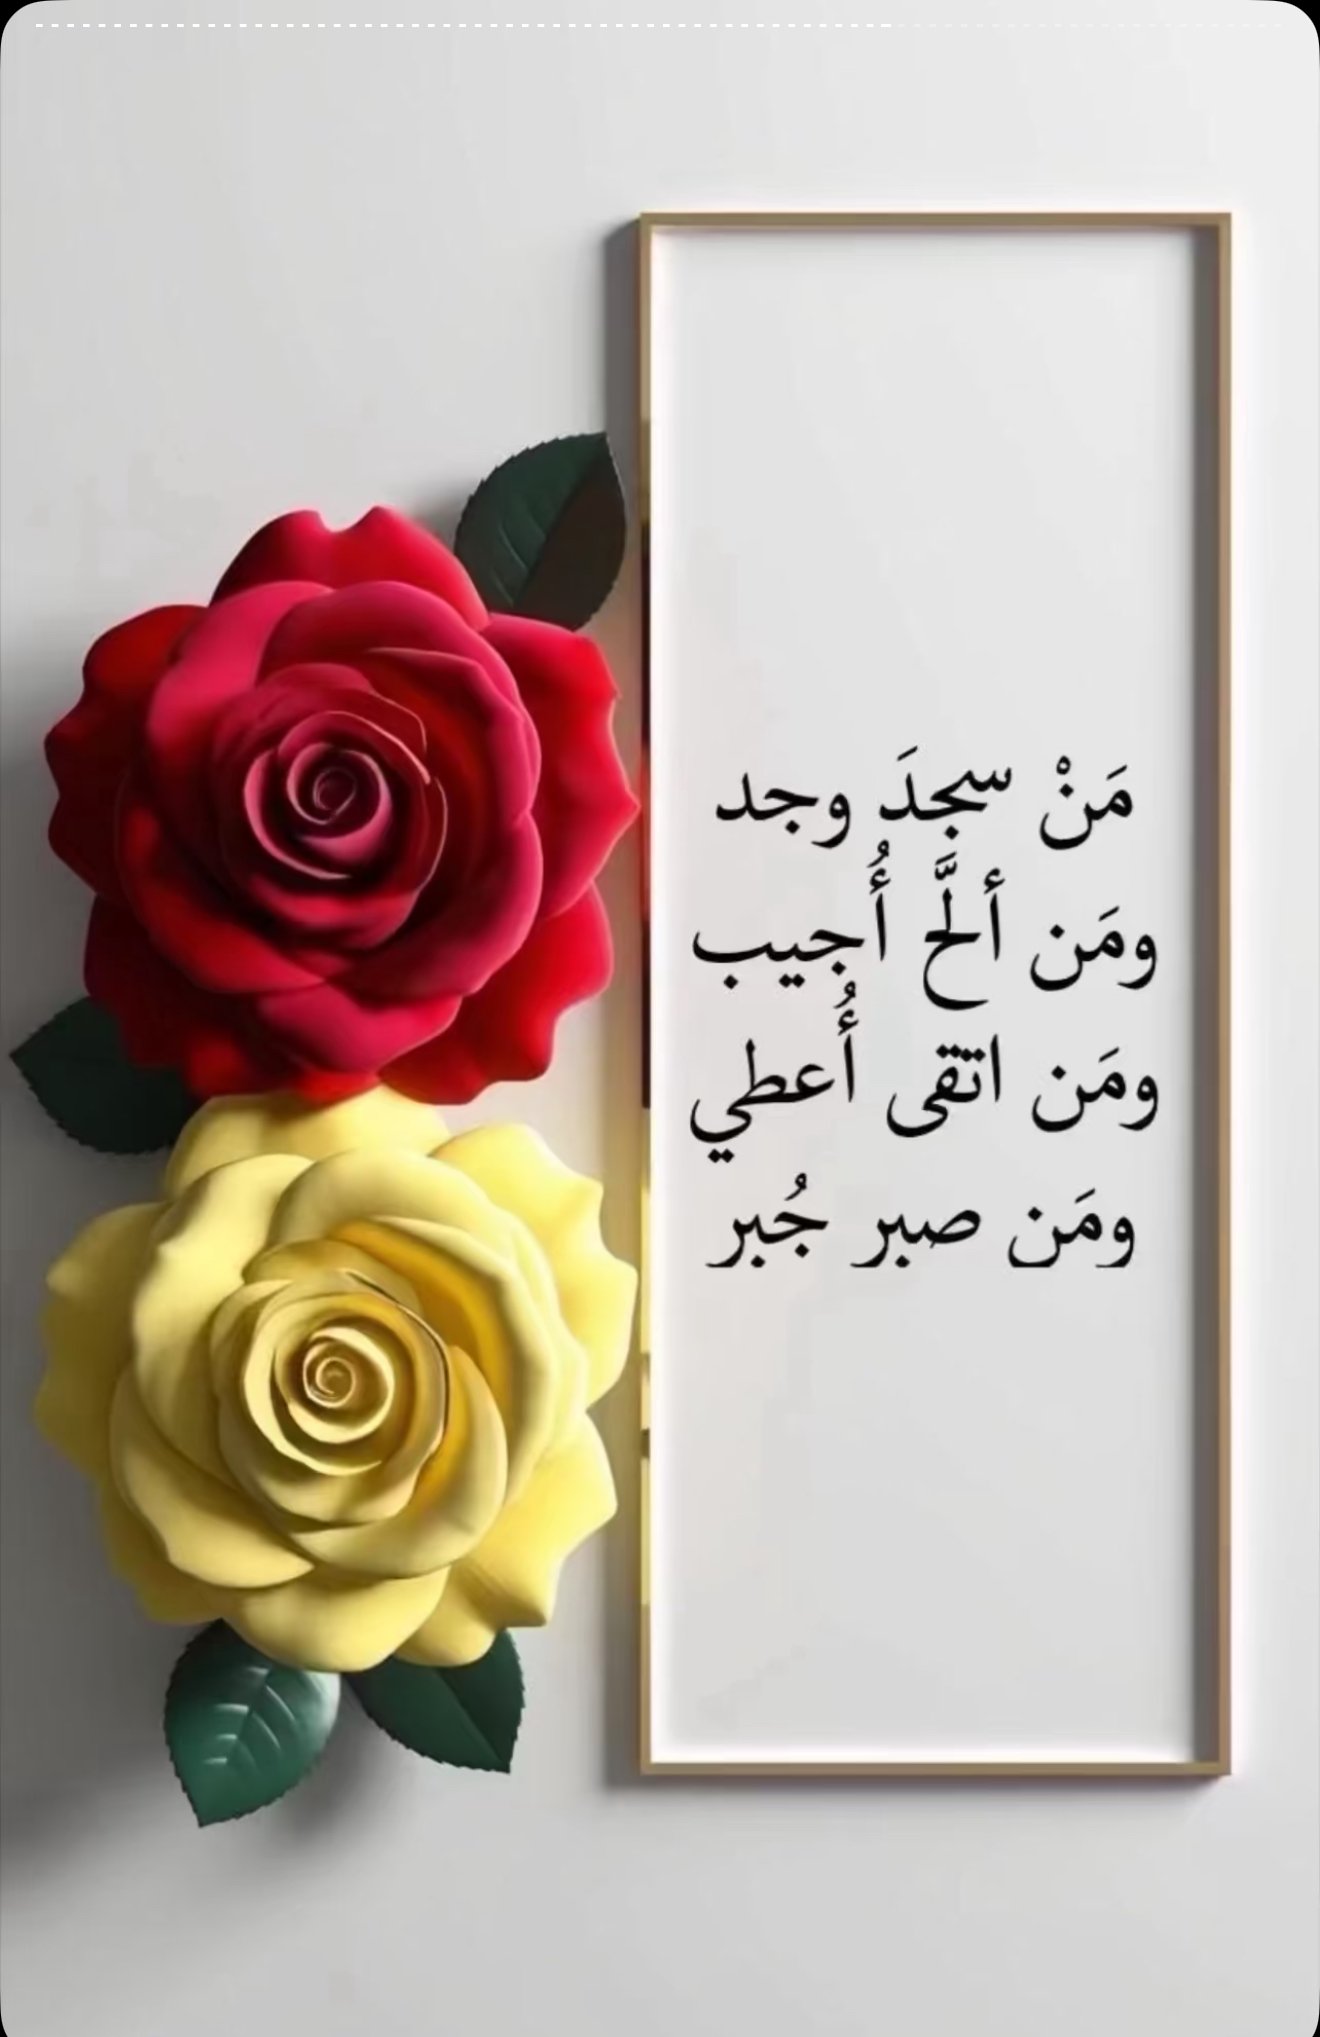 مَنْ سجدَ وجد
ومَن ألَّح أُجيب
ومَن اتقى أُعطي
ومَن صبر جُبر